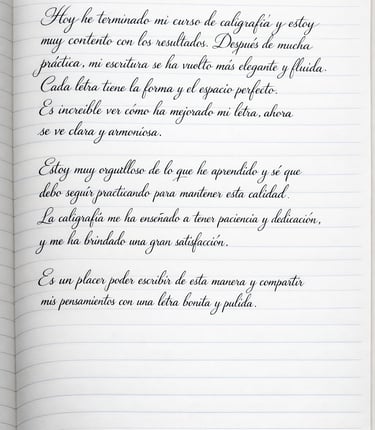 Hoy he terminado mi curso de caligrafía y estoy
muy contento con los resultados. Después de mucha
práctica, mi escritura se ha vuelto más elegante y fluida.
Cada letra tiene la forma y el espacio perfecto.
Es increíble ver cómo ha mejorado mi letra, ahora
se ve clara y armoniosa.
Estoy muy orgulloso de lo que he aprendido y sé que
debo seguir practicando para mantener esta calidad.
La caligrafía me ha enseñado a tener paciencia y dedicación,
y me ha brindado una gran satisfacción.
Es un placer poder escribir de esta manera y compartir
mis pensamientos con una letra bonita y pulida.